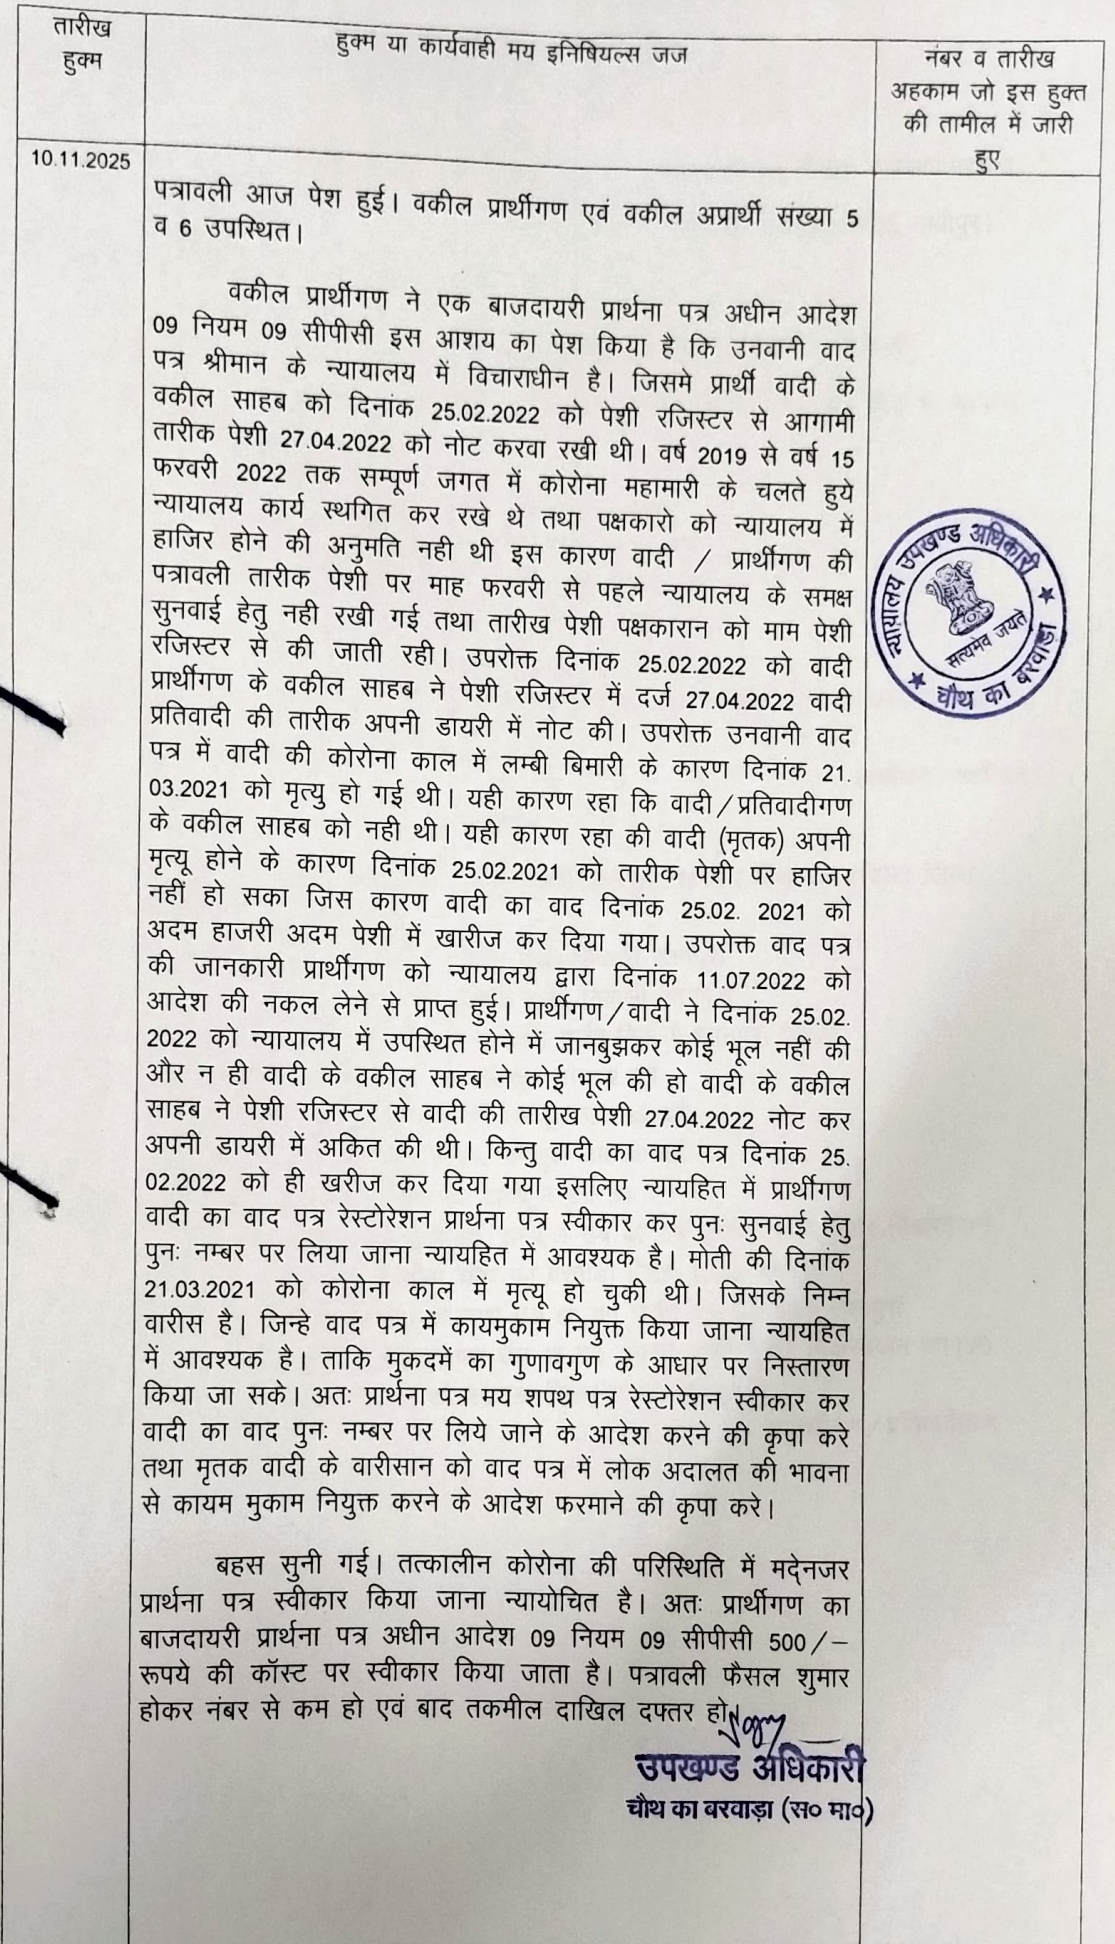 तारीख
हुक्म
हुक्म या कार्यवाही मय इनिषियल्स जज
नंबर व तारीख
अहकाम जो इस हुक्त
की तामील में जारी
हुए
10.11.2025
पत्रावली आज पेश हुई। वकील प्रार्थीगण एवं वकील अप्रार्थी संख्या 5
व 6 उपस्थित।
वकील प्रार्थीगण ने एक बाजदायरी प्रार्थना पत्र अधीन आदेश
09 नियम 09 सीपीसी इस आशय का पेश किया है कि उनवानी वाद
पत्र श्रीमान के न्यायालय में विचाराधीन है। जिसमे प्रार्थी वादी के
वकील साहब को दिनांक 25.02.2022 को पेशी रजिस्टर से आगामी
तारीक पेशी 27.04.2022 को नोट करवा रखी थी। वर्ष 2019 से वर्ष 15
फरवरी 2022 तक सम्पूर्ण जगत में कोरोना महामारी के चलते हुये
न्यायालय कार्य स्थगित कर रखे थे तथा पक्षकारो को न्यायालय में
हाजिर होने की अनुमति नही थी इस कारण वादी / प्रार्थीगण की
पत्रावली तारीक पेशी पर माह फरवरी से पहले न्यायालय के समक्ष
सुनवाई हेतु नही रखी गई तथा तारीख पेशी पक्षकारान को माम पेशी
रजिस्टर से की जाती रही। उपरोक्त दिनांक 25.02.2022 को वादी
प्रार्थीगण के वकील साहब ने पेशी रजिस्टर में दर्ज 27.04.2022 वादी
प्रतिवादी की तारीक अपनी डायरी में नोट की। उपरोक्त उनवानी वाद
पत्र में वादी की कोरोना काल में लम्बी बिमारी के कारण दिनांक 21.
03.2021 को मृत्यु हो गई थी। यही कारण रहा कि वादी/प्रतिवादीगण
के वकील साहब को नही थी। यही कारण रहा की वादी (मृतक) अपनी
मृत्यू होने के कारण दिनांक 25.02.2021 को तारीक पेशी पर हाजिर
नहीं हो सका जिस कारण वादी का वाद दिनांक 25.02. 2021 को
अदम हाजरी अदम पेशी में खारीज कर दिया गया। उपरोक्त वाद पत्र
की जानकारी प्रार्थीगण को न्यायालय द्वारा दिनांक 11.07.2022 को
आदेश की नकल लेने से प्राप्त हुई। प्रार्थीगण/वादी ने दिनांक 25.02.
2022 को न्यायालय में उपस्थित होने में जानबुझकर कोई भूल नहीं की
और न ही वादी के वकील साहब ने कोई भूल की हो वादी के वकील
साहब ने पेशी रजिस्टर से वादी की तारीख पेशी 27.04.2022 नोट कर
अपनी डायरी में अकित की थी। किन्तु वादी का वाद पत्र दिनांक 25.
02.2022 को ही खरीज कर दिया गया इसलिए न्यायहित में प्रार्थीगण
वादी का वाद पत्र रेस्टोरेशन प्रार्थना पत्र स्वीकार कर पुनः सुनवाई हेतु
पुनः नम्बर पर लिया जाना न्यायहित में आवश्यक है। मोती की दिनांक
21.03.2021 को कोरोना काल में मृत्यू हो चुकी थी। जिसके निम्न
वारीस है। जिन्हे वाद पत्र में कायमुकाम नियुक्त किया जाना न्यायहित
में आवश्यक है। ताकि मुकदमें का गुणावगुण के आधार पर निस्तारण
किया जा सके। अतः प्रार्थना पत्र मय शपथ पत्र रेस्टोरेशन स्वीकार कर
वादी का वाद पुनः नम्बर पर लिये जाने के आदेश करने की कृपा करे
तथा मृतक वादी के वारीसान को वाद पत्र में लोक अदालत की भावना
से कायम मुकाम नियुक्त करने के आदेश फरमाने की कृपा करे।
बहस सुनी गई। तत्कालीन कोरोना की परिस्थिति में मद्देनजर
प्रार्थना पत्र स्वीकार किया जाना न्यायोचित है। अतः प्रार्थीगण का
बाजदायरी प्रार्थना पत्र अधीन आदेश 09 नियम 09 सीपीसी 500/–
रूपये की कॉस्ट पर स्वीकार किया जाता है। पत्रावली फैसल शुमार
होकर नंबर से कम हो एवं बाद तकमील दाखिल दफ्तर हो।
उपखण्ड अधिकारी
चौथ का बरवाड़ा (स० मा०)
न्यायालय उपखण्ड अधिकारी
सत्यमेव जयते
★ चौथ का बरवाड़ा ★